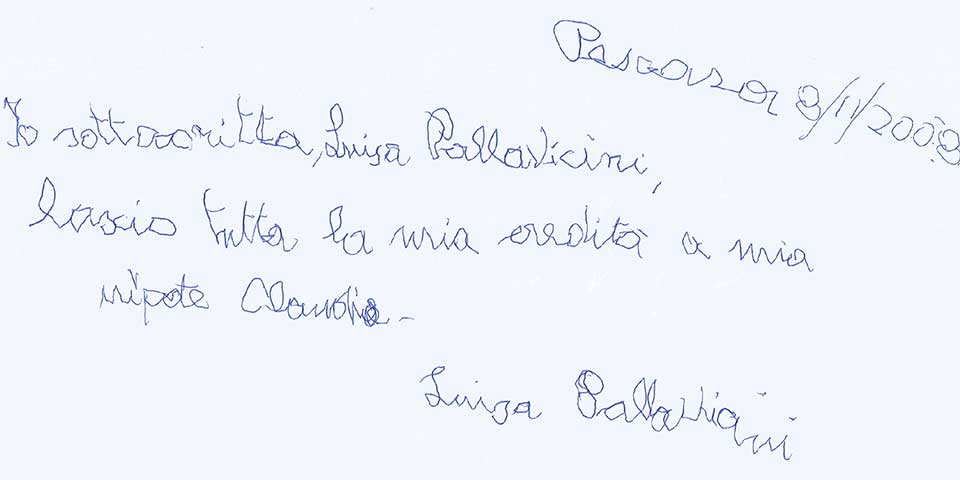 Pescara 8/11/2008
Io sottoscritta, Luisa Pallavicini,
lascio tutta la mia eredità a mia
nipote Claudia.
Luisa Pallavicini